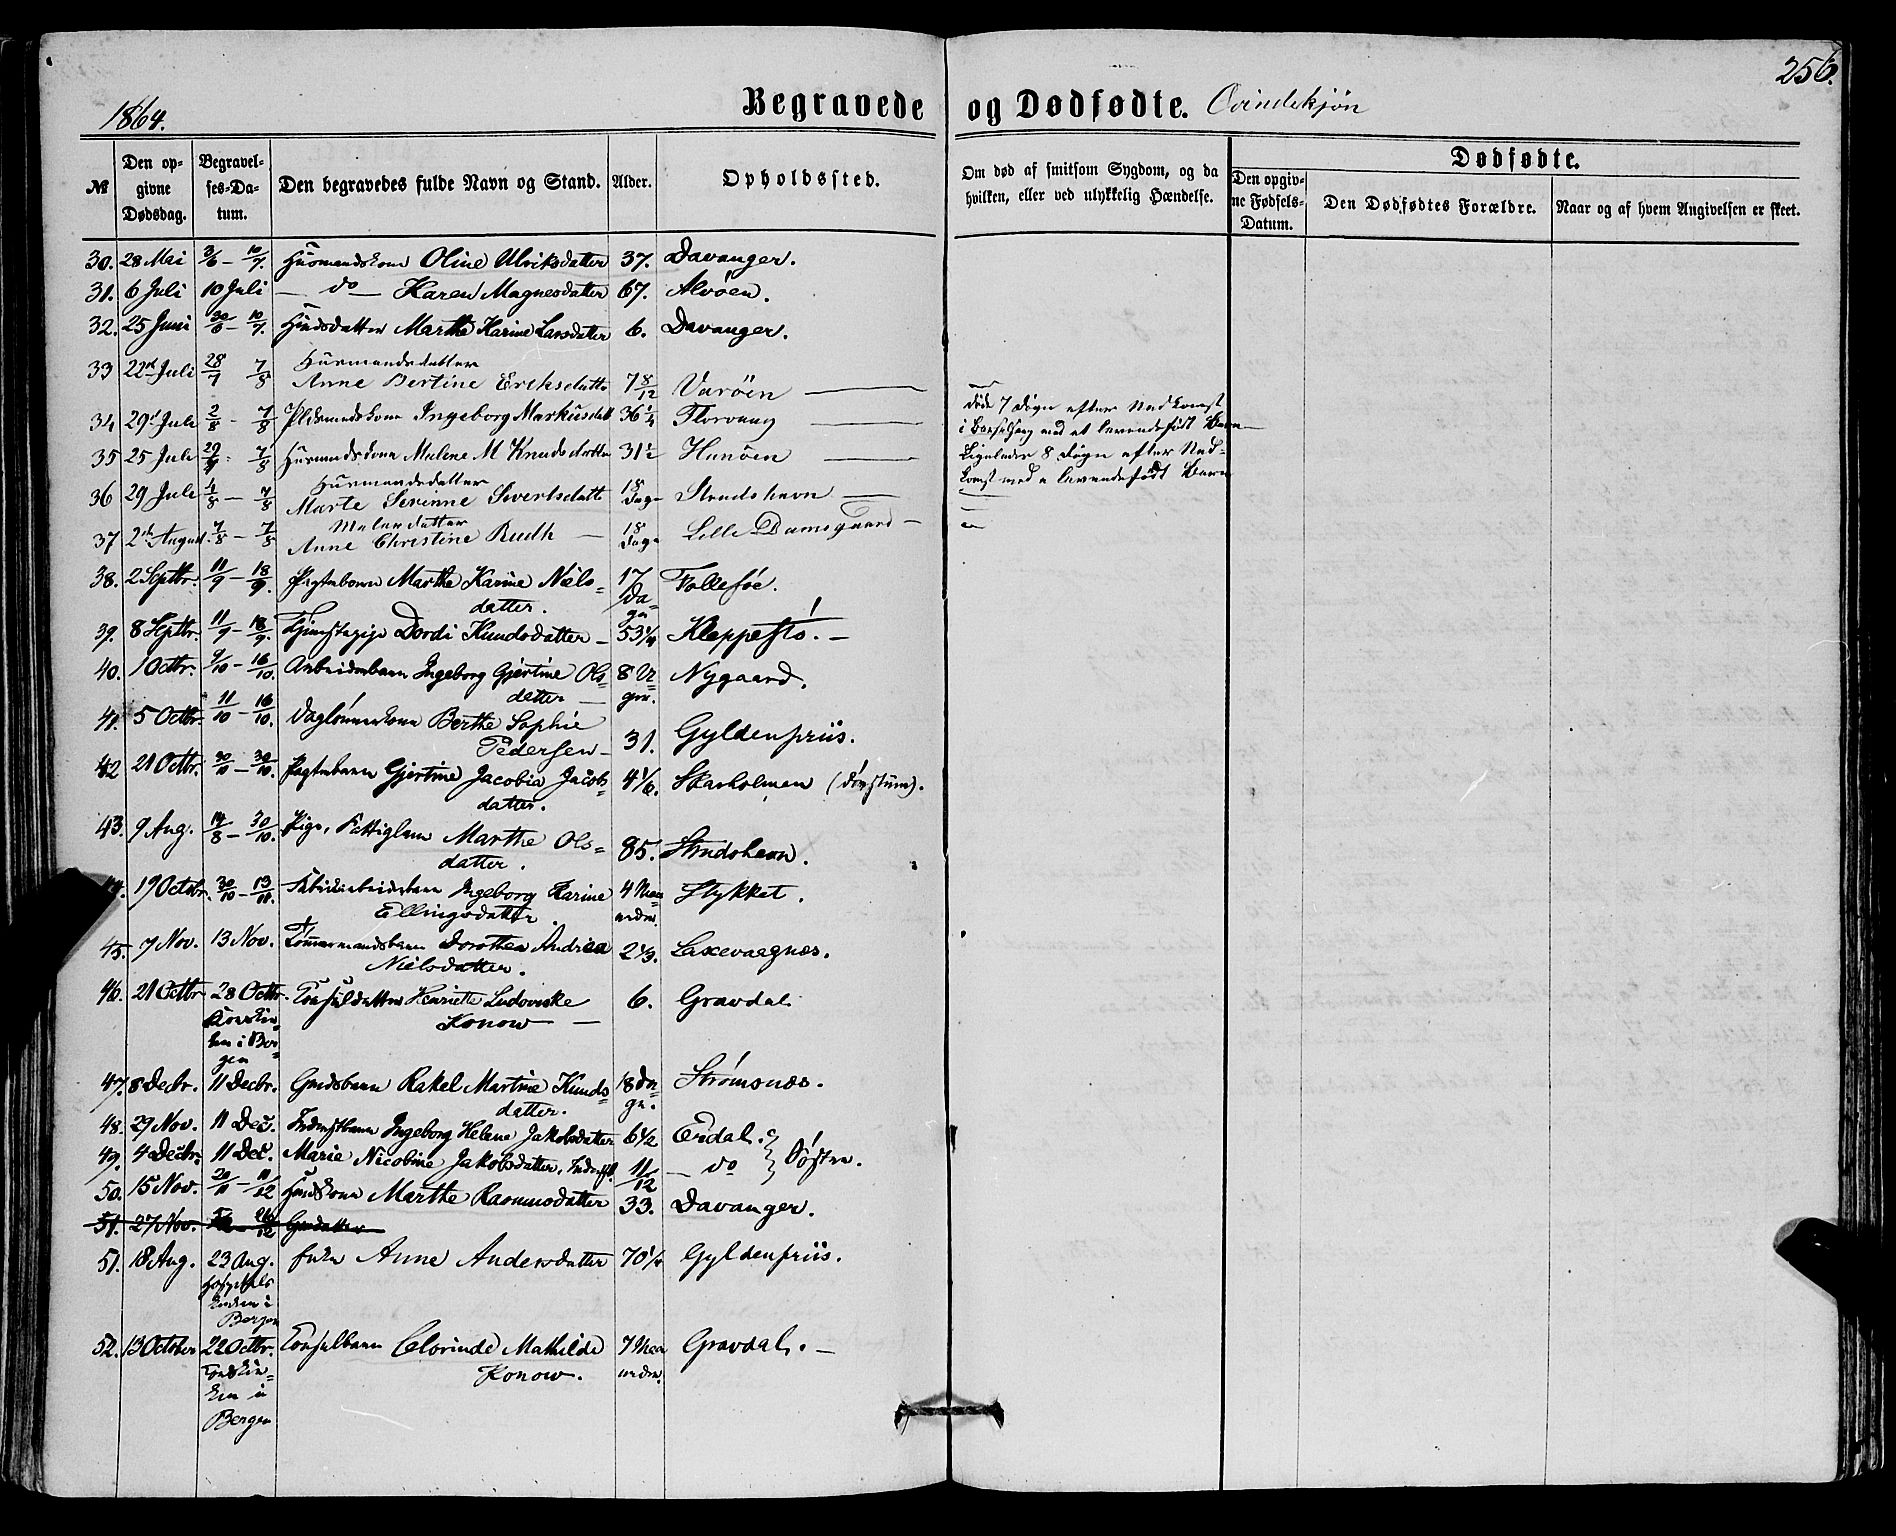 256.
1864.
Begravede og Dødfødte. Qvindekjøn
№
Den opgivne Dødsdag.
Begravelses-Datum.
Den begravedes fulde Navn og Stand.
Alder.
Opholdssted.
Om død af smitsom Sygdom, og da hvilken, eller ved ulykkelig Hændelse.
Dødfødte.
Den opgivne Fødsels-Datum.
Den Dødfødtes Forældre.
Naar og af hvem Angivelsen er skeet.
30. 28 Mai 3/6 – 10/7. Huusmandskone Oline Ulriksdatter 37. Davanger.
31. 6 Juli 10 Juli — do — Karen Magnesdatter 67. Alvøen.
32. 25 Juni 30/6 – 10/7. Marthe Karine Larsdatter 6. Davanger.
33 22de Juli 28/7 7/8 Huusmandsdatter
Anne Bertine Eriksdatter 7 8/12 Varøen —
34 29' Juli 2/8 – 7/8 Ingeborg Markusdatt 36 1/4 Florvaag —
35 25 Juli 29/7 - 7/8 Huusmandskone Malene M Knudsdatter 31 1/2 Hanøen —
36 29 Juli 4/8 – 7/8 Huusmandsdatter
Marte Serinne Sivertsdatt 18 Dage Strudshavn —
37 2den August 7/8 – 7/8 Malerdatter
Anne Christine Rudh — 18 Dage Lille Damsgaard —
døde 7 Døgn efter Nedkomst
i Barselseng med et levendefødt Barn —
Ligeledes 8 Døgn efter Ned-
komst med e levendefødt Barn
38. 2 Septbr. 11/9 – 18/9. Marthe Karine Niels-
datter. 17 Da-
ge Follesøe.
39. 8 Septbr. 11/9 – 18/9. Tjenestepige Dordi Knudsdatter — 53 1/4 Kleppestø. —
40. 1 Octbr. 9/10 – 16/10. Arbeidsbarn Ingeborg Gjertine Ols-
datter — 8 U-
ger. Nygaard.
41. 5 Octbr. 11/10 – 16/10. Daglønnerkone Berthe Sophie
Pedersen — 31. Gyldenpriis.
42 21 Octbr. 30/10 – 30/10. Gjertine Jacobia Jacobs-
datter. 4 1/6. Skarholmen
43. 9 Aug. 14/8 – 30/10. Pige, Fattiglem Marthe Ols-
datter. 85. Strudshavn.
44. 19 Octbr. 30/10 – 13/11. Ingeborg Karine
Ellingsdatter. 4 Maa-
neder. Stykket.
45. 7 Nov. 13 Nov. Tømmermandsbarn Dorothea Andrea
Nielsdatter. 2 1/3. Laxevaagnæs.
46. 21 Octbr 28 Octbr. Consuldatter Henriette Ludoviske
Konow — 6. Gravdal.
Korskir-
ken i Ber-
gen
47. 8 Decbr. 11 Decbr. Rakel Martine Knuds-
datter. 18 Da-
ge. Strømsnæs.
48. 29 Nov. 11 Dec. Ingeborg Helene Jakobsdatter 6 1/2 Erdal.
49. 4 Decbr. 11 Dec. Marie Nicoline Jakobsdatter, 11/12 — do } Søstre.
50. 15 Nov. 20/11 – 11/12 Marthe Rasmusdatter 33. Davanger.
51. 27 Nov.
51. 18 Aug. 23 Aug. Anne Andersdatter 70 1/4 Gyldenpriis.
Hospitals
Kirken i
Bergen
52. 13 October 22 Octbr. Consulbarn Clorinde Mathilde
Konow. 7 Maa-
neder. Gravdal. —
Korskir-
ken i
Bergen